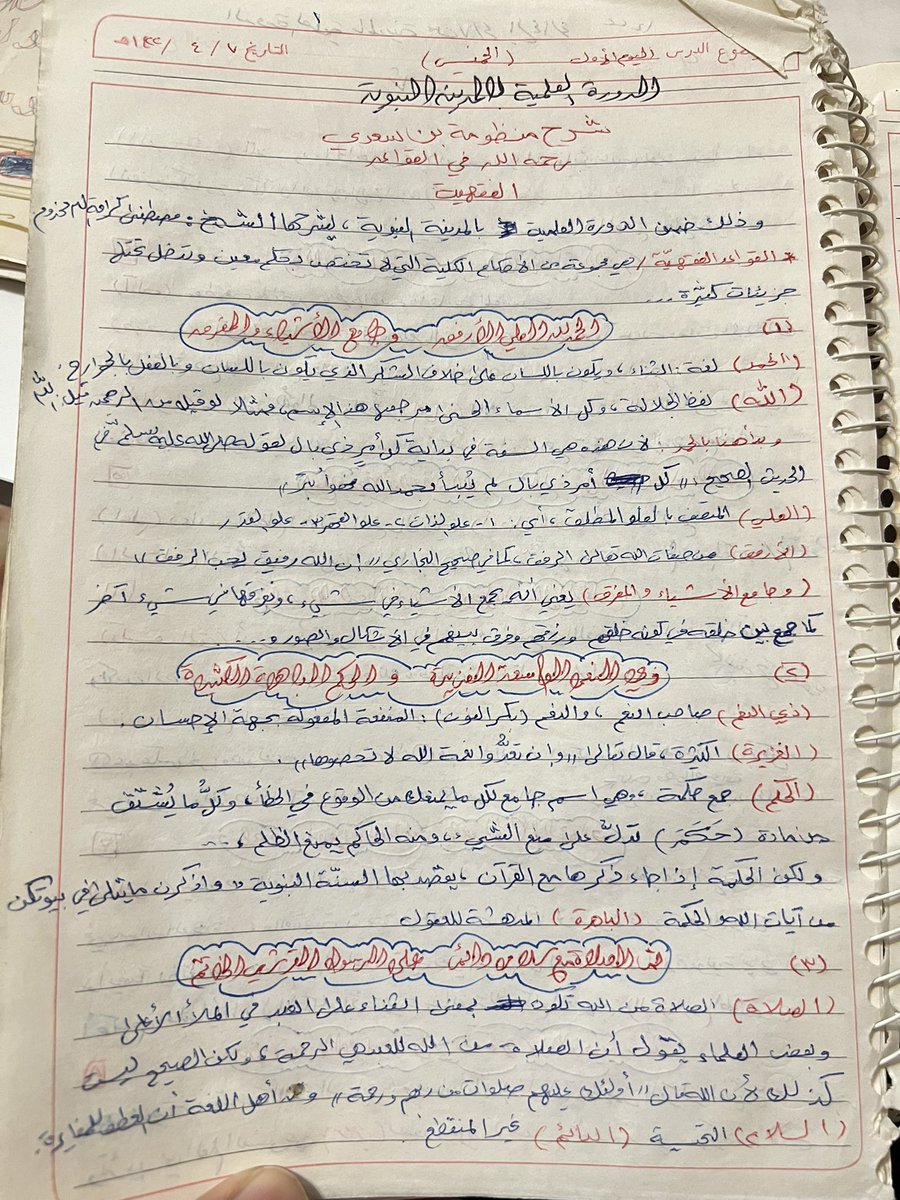 موضوع الدرس اليوم الأول (الخميس) التاريخ ٧ / ٤ / ١٤٤٠هـ
الدورة العلمية بالمدينة النبوية
شرح منظومة بن سعدي
رحمه الله في القواعد
الفقهية
وذلك ضمن الدورة العلمية بالمدينة النبوية ، يشرحها الشيخ : مصطفى كرامة الله مخدوم
* القواعد الفقهية / هي مجموعة من الأحكام الكلية التي لا تختص بحكم معين وتدخل تحتها
جزيئات كثيرة ...
(١) الحمد لله العلي الأرفق وجامع الأشياء والمفرق
(الحمد) لغة : الثناء ، ويكون باللسان على خلاف الشكر الذي يكون باللسان وبالفعل بالجوارح .
(الله) لفظ الجلالة ، وكل الأسماء الحسنى مرجعها هذا الإسم ، فمثلا لو قيل من الرحمن قيل : الله
وبدأ هنا بالحمد : لأن هذه هي السنة في بداية كل أمر ذي بال لقوله صلى الله عليه وسلم في
الحديث الصحيح : " كل أمر ذي بال لم يُبدأ بحمد الله فهو أبتر "
(العلي) المتصف بالعلو المطلق ، أي : ١- علو الذات ٢- علو القهر ٣- علو القدر /
(الأرفق) من صفات الله تعالى الرفق ، كما في صحيح البخاري " إن الله رفيق يحب الرفق "
(وجامع الأشياء والمفرق) يعني أنه يجمع الأشياء في شيء ، ويفرقها في شيء آخر
كما جمع بين خلقه في كونه خلقهم ورزقهم وفرق بينهم في الأشكال والصور و....
(٢) ذي النعم الواسعة الغزيرة و الحكم الباهرة الكثيرة
(ذي النعم) صاحب النعم ، والنعم (بكسر النون) : المنفعة المفعولة بجهة الإحسان .
(الغزيرة) الكثيرة ، قال تعالى " وإن تعدُّوا نعمة الله لا تحصوها " .
(الحكم) جمع حكمة ، وهي اسم جامع لكل ما يمنعك من الوقوع في الخطأ ، وكلُّ ما يُشتق
من مادة (حَكَمَ) تدلُّ على منع الشيء ، ومنه الحاكم يمنع الظلم ، ...
ولكن الحكمة إذا جاء ذكرها مع القرآن ، يقصد بها السنّة النبوية " واذكرن ما يتلى في بيوتكن
من آيات الله والحكمة (الباهرة) المدهشة للعقول
(٣) ثم الصلاة مع سلام دائم على الرسول القرشي الخاتم
(الصلاة) الصلاة من الله تكون بمعنى الثناء على العبد في الملأ الأعلى
وبعض العلماء يقول أن الصلاة من الله للعبد هي الرحمة ، ولكن الصحيح ليس
كذلك لأن الله قال " أولئك عليهم صلوات من ربهم ورحمة " وعند أهل اللغة أن العطف للمغايرة
(السلام) التحية (الدائم) غير المنقطع